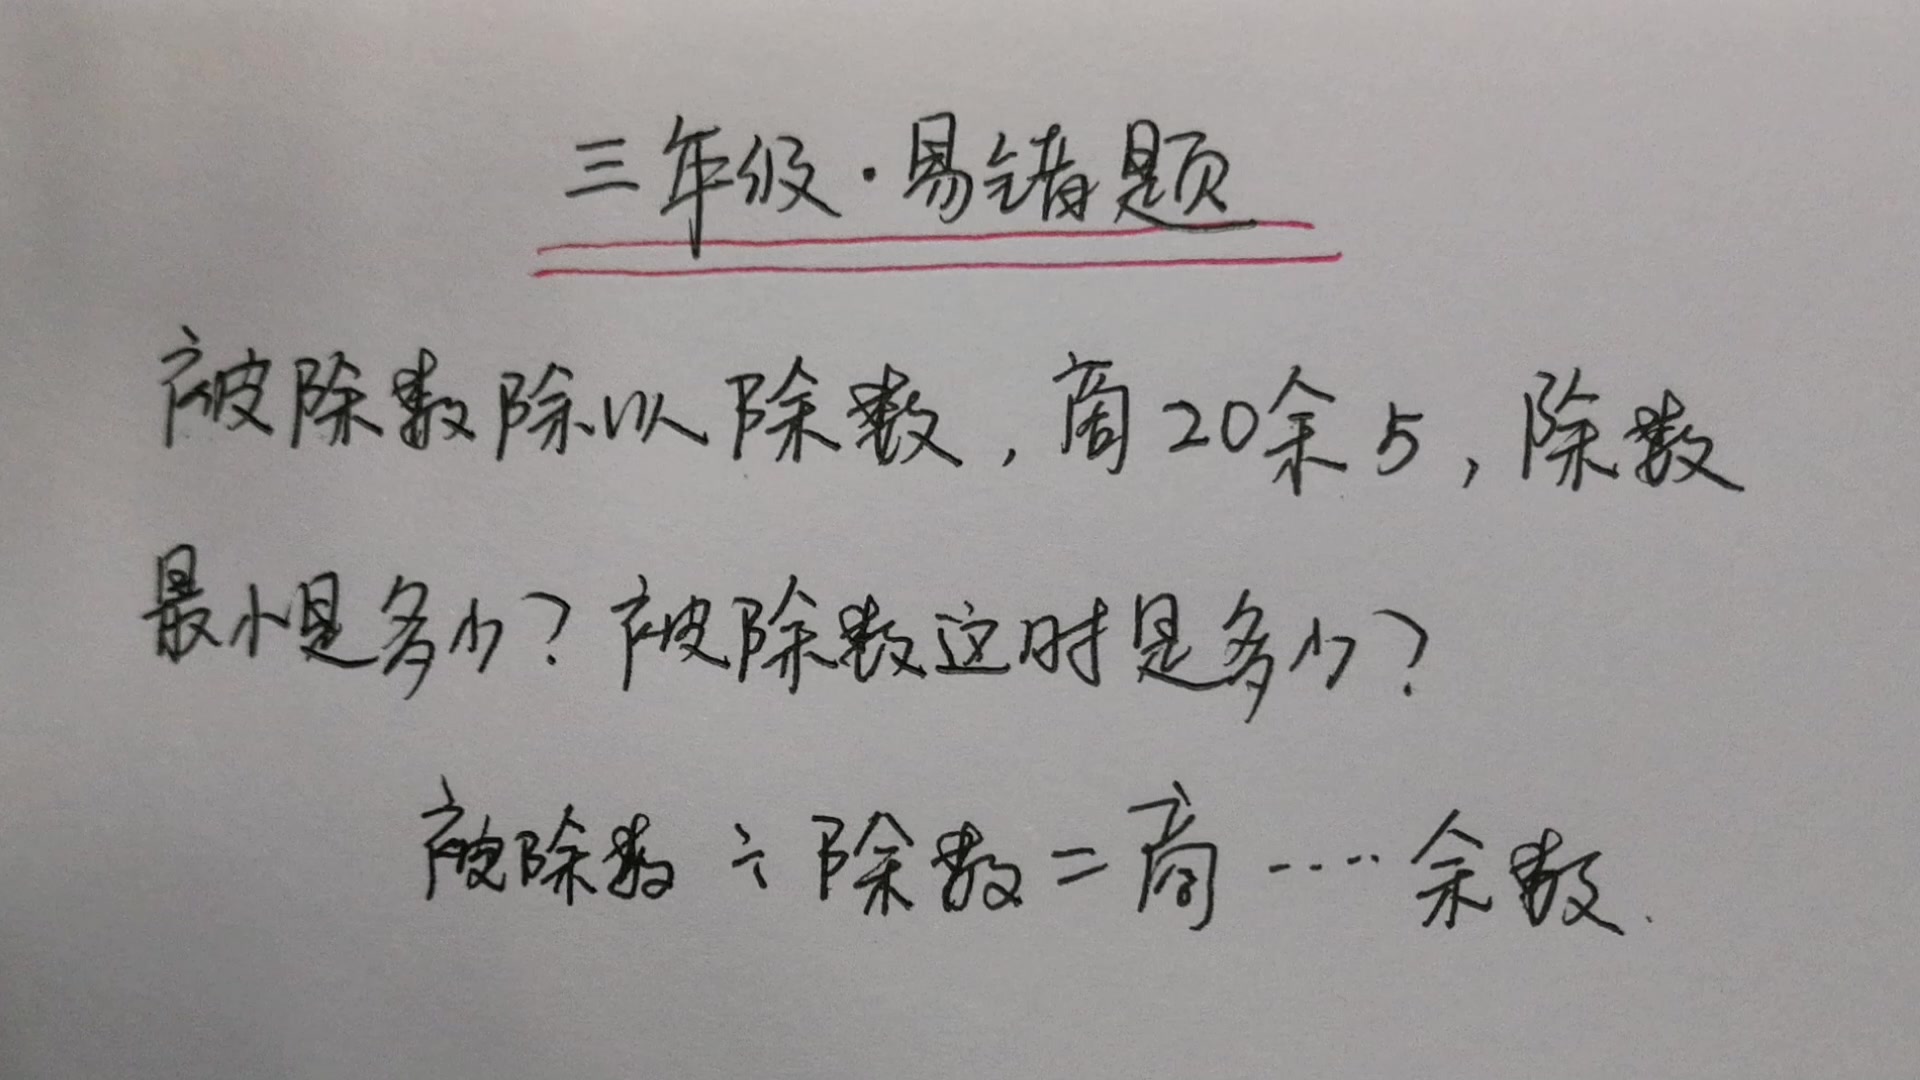 三年级·易错题
被除数除以除数，商20余5，除数
最小是多少？被除数这时是多少？
被除数÷除数=商……余数.